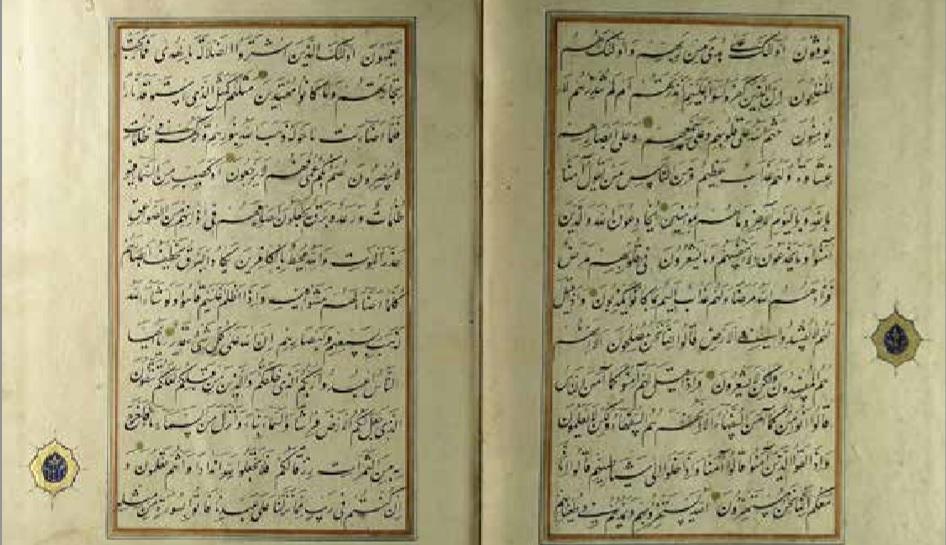 يوقنون اولئك على هدى من ربهم واولئك هم
المفلحون ان الذين كفروا سواء عليهم ءانذرتهم ام لم تنذرهم لا
يؤمنون ختم الله على قلوبهم وعلى سمعهم وعلى ابصارهم
غشاوة ولهم عذاب عظيم ومن الناس من يقول آمنا
بالله وباليوم الآخر وما هم بمؤمنين يخادعون الله والذين
آمنوا وما يخدعون الا انفسهم وما يشعرون في قلوبهم مرض
فزادهم الله مرضا ولهم عذاب اليم بما كانوا يكذبون واذا قيل
لهم لا تفسدوا في الارض قالوا انما نحن مصلحون الا انهم
هم المفسدون ولكن لا يشعرون واذا قيل لهم آمنوا كما آمن الناس
قالوا انؤمن كما آمن السفهاء الا انهم هم السفهاء ولكن لا يعلمون
واذا لقوا الذين آمنوا قالوا آمنا واذا خلوا الى شياطينهم قالوا انا
معكم انما نحن مستهزؤن الله يستهزئ بهم ويمدهم في طغيانهم
يعمهون اولئك الذين اشتروا الضلالة بالهدى فما ربحت
تجارتهم وما كانوا مهتدين مثلهم كمثل الذي استوقد نارا
فلما اضاءت ما حوله ذهب الله بنورهم وتركهم في ظلمات
لا يبصرون صم بكم عمي فهم لا يرجعون او كصيب من السماء فيه
ظلمات ورعد وبرق يجعلون اصابعهم في آذانهم من الصواعق
حذر الموت والله محيط بالكافرين يكاد البرق يخطف ابصارهم
كلما اضاء لهم مشوا فيه واذا اظلم عليهم قاموا ولو شاء الله
لذهب بسمعهم وابصارهم ان الله على كل شئ قدير يا ايها
الناس اعبدوا ربكم الذي خلقكم والذين من قبلكم لعلكم تتقون
الذي جعل لكم الارض فراشا والسماء بناء وانزل من السماء ماء فاخرج
به من الثمرات رزقا لكم فلا تجعلوا لله اندادا وانتم تعلمون و
ان كنتم في ريب مما نزلنا على عبدنا فاتوا بسورة من مثله